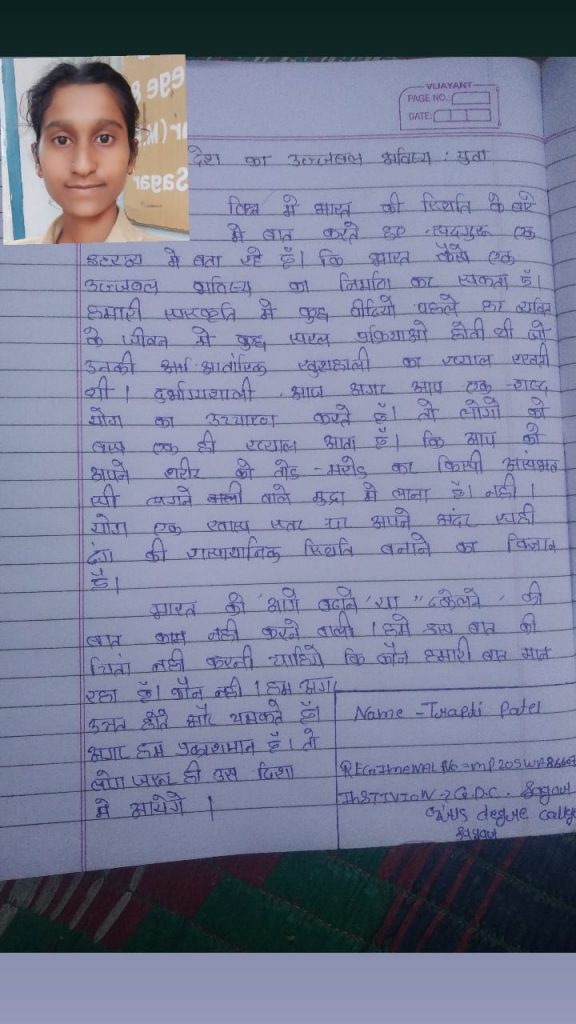 ege
r(M.
Sagar
VIJAYANT
PAGE NO.:
DATE:
देश का उज्जवल भविष्य : युवा
विश्व मे भारत की स्थिति के बारे
मे बात करते हुए सदगुरू एक
मे बता रहे हैं। कि भारत कैसे एक
उज्जवल भविष्य का निर्माण कर सकता है।
हमारी संस्कृति मे कुछ पीढियो पहले हर व्यक्ति
के जीवन मे कुछ सरल प्रक्रियाओ होती थी जो
उनकी आंतरिक खुशहाली का ख्याल रखती
थी। दुर्भाग्यशाली आज अगर आप एक शब्द
योग का उच्चारण करते हैं। तो लोगो को
बस एक ही ख्याल आता हैं। कि आप को
अपने शरीर को तोड-मरोड कर किसी असंभव
सी लगने वाले मुद्रा मे लाना है। नही।
योग एक खास स्तर पर अपने अंदर सही
ढंग की रासायनिक स्थिति बनाने का विज्ञान
है।
भारत को 'आगे बढाने' या "ढकेलने' की
बात काम नही करने वाली। हमे इस बात की
चिंता नही करनी चाहिये कि कौन हमारी बात मान
रहा हैं। कौन नही। हम अगर
उन्नत होते और चमकते हैं।
अगर हम प्रकाशमान हैं। तो
लोग जरूर ही उस दिशा
मे आयेगे।
Name - Trapti Patel
REGIMENTAL No = MP20SWA
INSTITUTION → G.D.C. Sagar
Girls degree college
Sagar